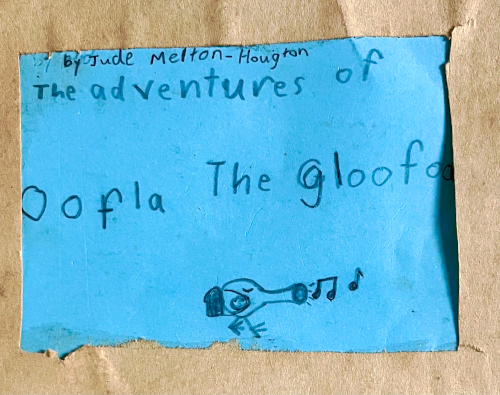 by Jude Melton-Hougton
The adventures of
Oofla The gloofoo